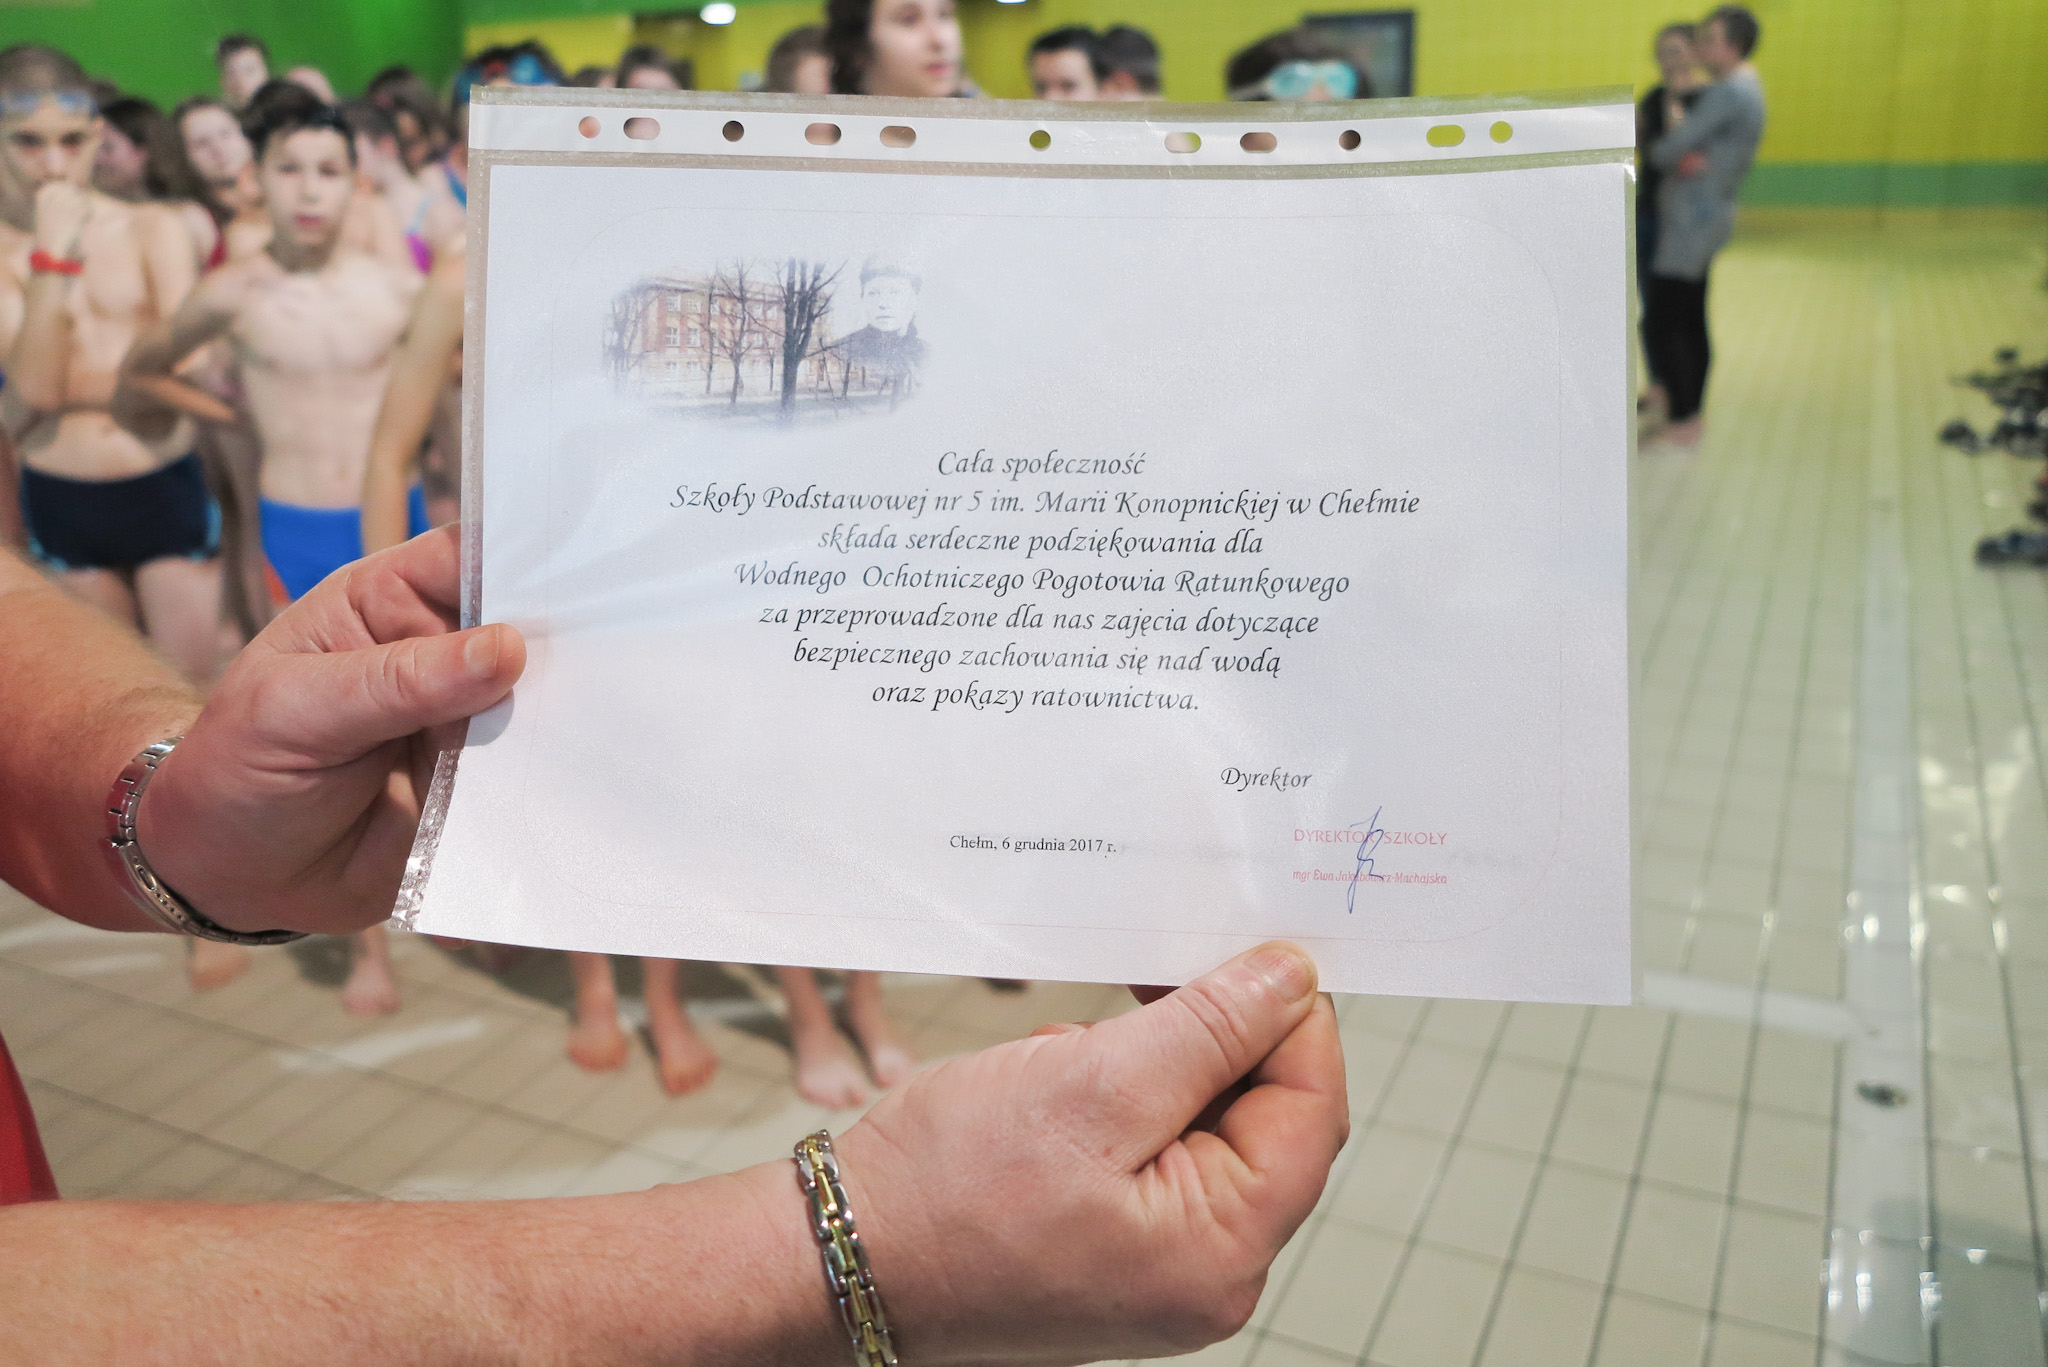 Cała społeczność
Szkoły Podstawowej nr 5 im. Marii Konopnickiej w Chełmie
składa serdeczne podziękowania dla
Wodnego Ochotniczego Pogotowia Ratunkowego
za przeprowadzone dla nas zajęcia dotyczące
bezpiecznego zachowania się nad wodą
oraz pokazy ratownictwa.
Dyrektor
DYREKTOR SZKOŁY
Chełm, 6 grudnia 2017 r.
mgr Ewa Jakubowicz-Machajska